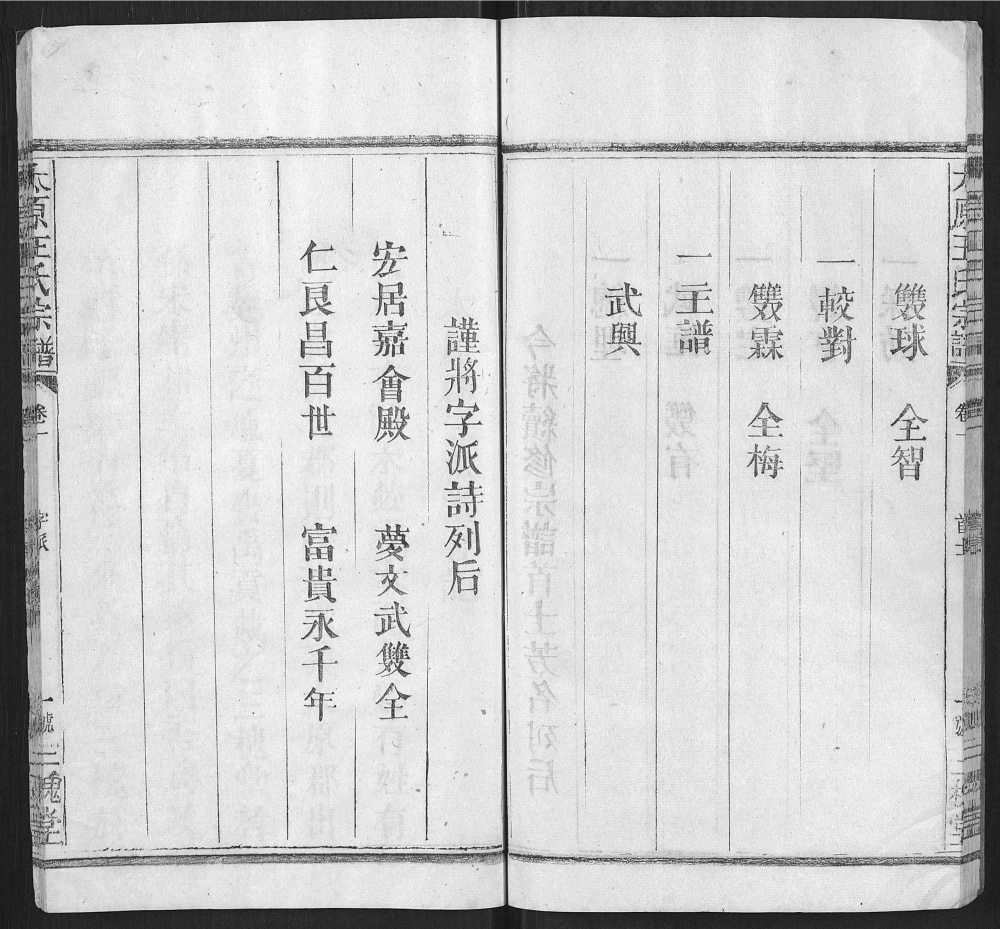 雙球 全智
一較對
雙霖 全梅
一主譜
武興
謹將字派詩列后
宏居嘉會殿 夢文武雙全
仁良昌百世 富貴永千年
太原王氏宗譜 卷一 字派 一號 三槐堂
太原王氏宗譜 卷一 首士